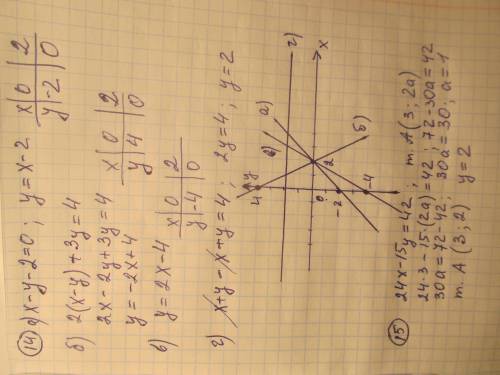 14 а) x-y-2=0; y=x-2
x | 0 | 2
y | -2 | 0
б) 2(x-y)+3y=4
2x-2y+3y=4
y=-2x+4
x | 0 | 2
y | 4 | 0
в) y=2x-4
x | 0 | 2
y | -4 | 0
г) x+y-x+y=4; 2y=4; y=2
y
4
в) а)
г)
x
0 2
-2
-4
б)
15 24x-15y=42; т. A(3; 2a)
24·3-15·(2a)=42; 72-30a=42
30a=72-42; 30a=30; a=1
т. A (3; 2) y=2